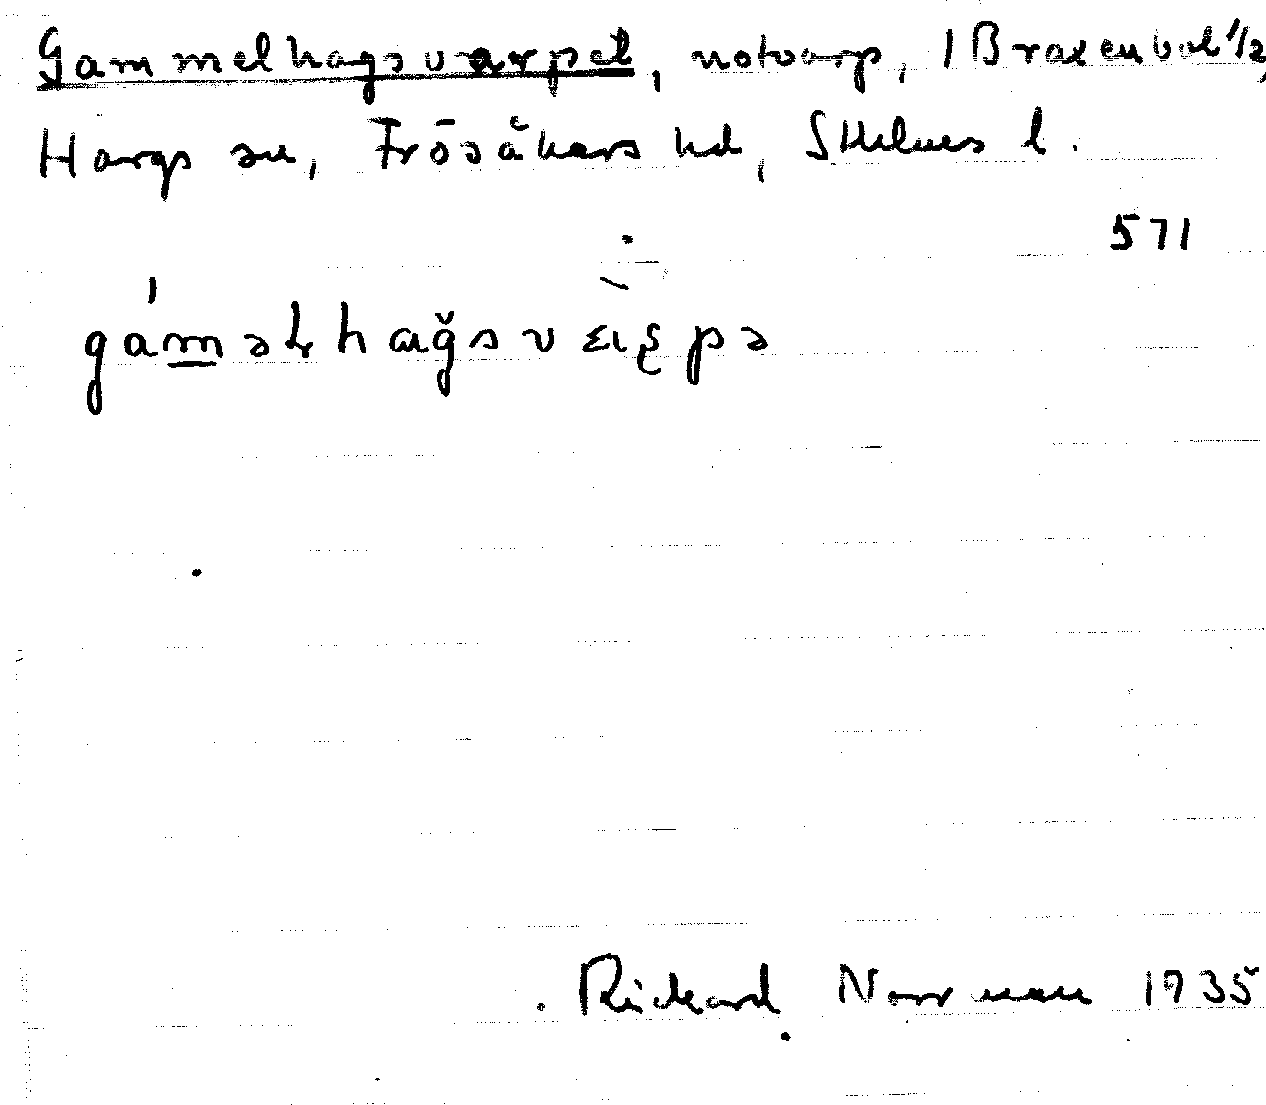 Gammelhagsvarpet, notvarp, 1 Braxenbol 1/2,
Hargs sn, Frösåkers hd, Sthlms l.
571
gáməlhaǧsvεıρpə
Rickard Norrman 1935